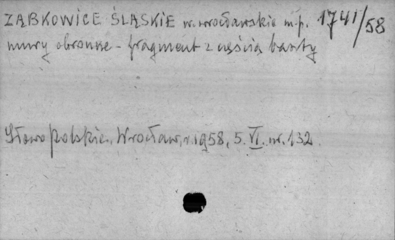 ZĄBKOWICE ŚLĄSKIE w. wrocławskie m.p. 1741/58
mury obronne - fragment z częścią baszty
Słowo Polskie. Wrocław, r. 1958, 5. VI. nr. 132